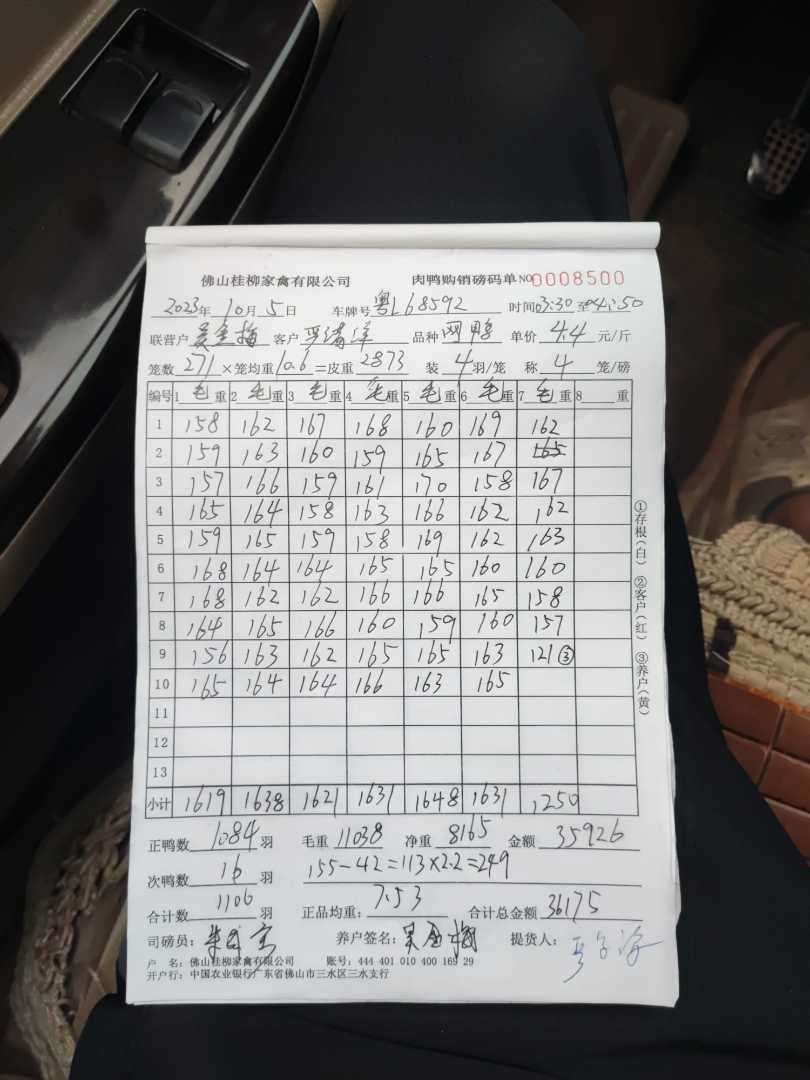 佛山桂柳家禽有限公司 肉鸭购销磅码单 NO 0008500
2023年10月5日 车牌号 粤L68592 时间03:30至04:50
联营户 吴金梅 客户 品种 网鸭 单价 4.4 元/斤
笼数 271 ×笼均重 10.6 =皮重 2873 装 4 羽/笼 称 4 笼/磅
编号 1 毛重 2 毛重 3 毛重 4 毛重 5 毛重 6 毛重 7 毛重 8 重
1 158 162 167 168 160 169 162
2 159 163 160 159 165 167 165
3 157 166 159 161 170 158 167
4 165 164 158 163 166 162 162
5 159 165 159 158 169 162 163
6 168 164 164 165 165 160 160
7 168 162 162 166 166 165 158
8 164 165 166 160 159 160 157
9 156 163 162 165 165 163 121 ③
10 165 164 164 166 163 165
11
12
13
小计 1619 1638 1621 1631 1648 1631 1250
正鸭数 1084 羽 毛重 11038 净重 8165 金额 35926
次鸭数 16 羽 155-42=113×2.2=249
合计数 1100 羽 正品均重: 7.53 合计总金额 36175
司磅员: 养户签名: 吴金梅 提货人:
户 名: 佛山桂柳家禽有限公司 账号: 444 401 010 400 169 29
开户行: 中国农业银行广东省佛山市三水区三水支行
①存根(白) ②客户(红) ③养户(黄)